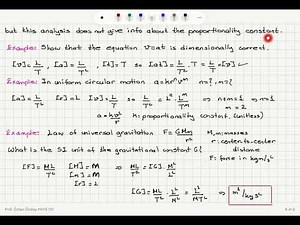 but this analysis does not give info about the proportionality constant.
Example: Show that the equation v=at is dimensionally correct.
[v] = L/T , [a] = L/T² , [t] = T so [at] = L/T² · T = L/T = [v] ✓
Example: In uniform circular motion a=krⁿvᵐ n=?, m=?
[a] = L/T² [r]=L [v] = L/T so L/T² = Lⁿ Lᵐ/Tᵐ → n+m=1 → n=-1
m=2
a = k v²/r k: proportionality constant. (unitless)
Example: Law of universal gravitation F = GMm/r² M, m: masses
r: center-to-center
distance
What is the SI unit of the gravitational constant G?
F: force in kgm/s²
[F] = ML/T² [M] = M
[r] = L
→ ML/T² = [G] M²/L²
[G] = ML/T² L²/M² = L³/MT² → m³/kgs²